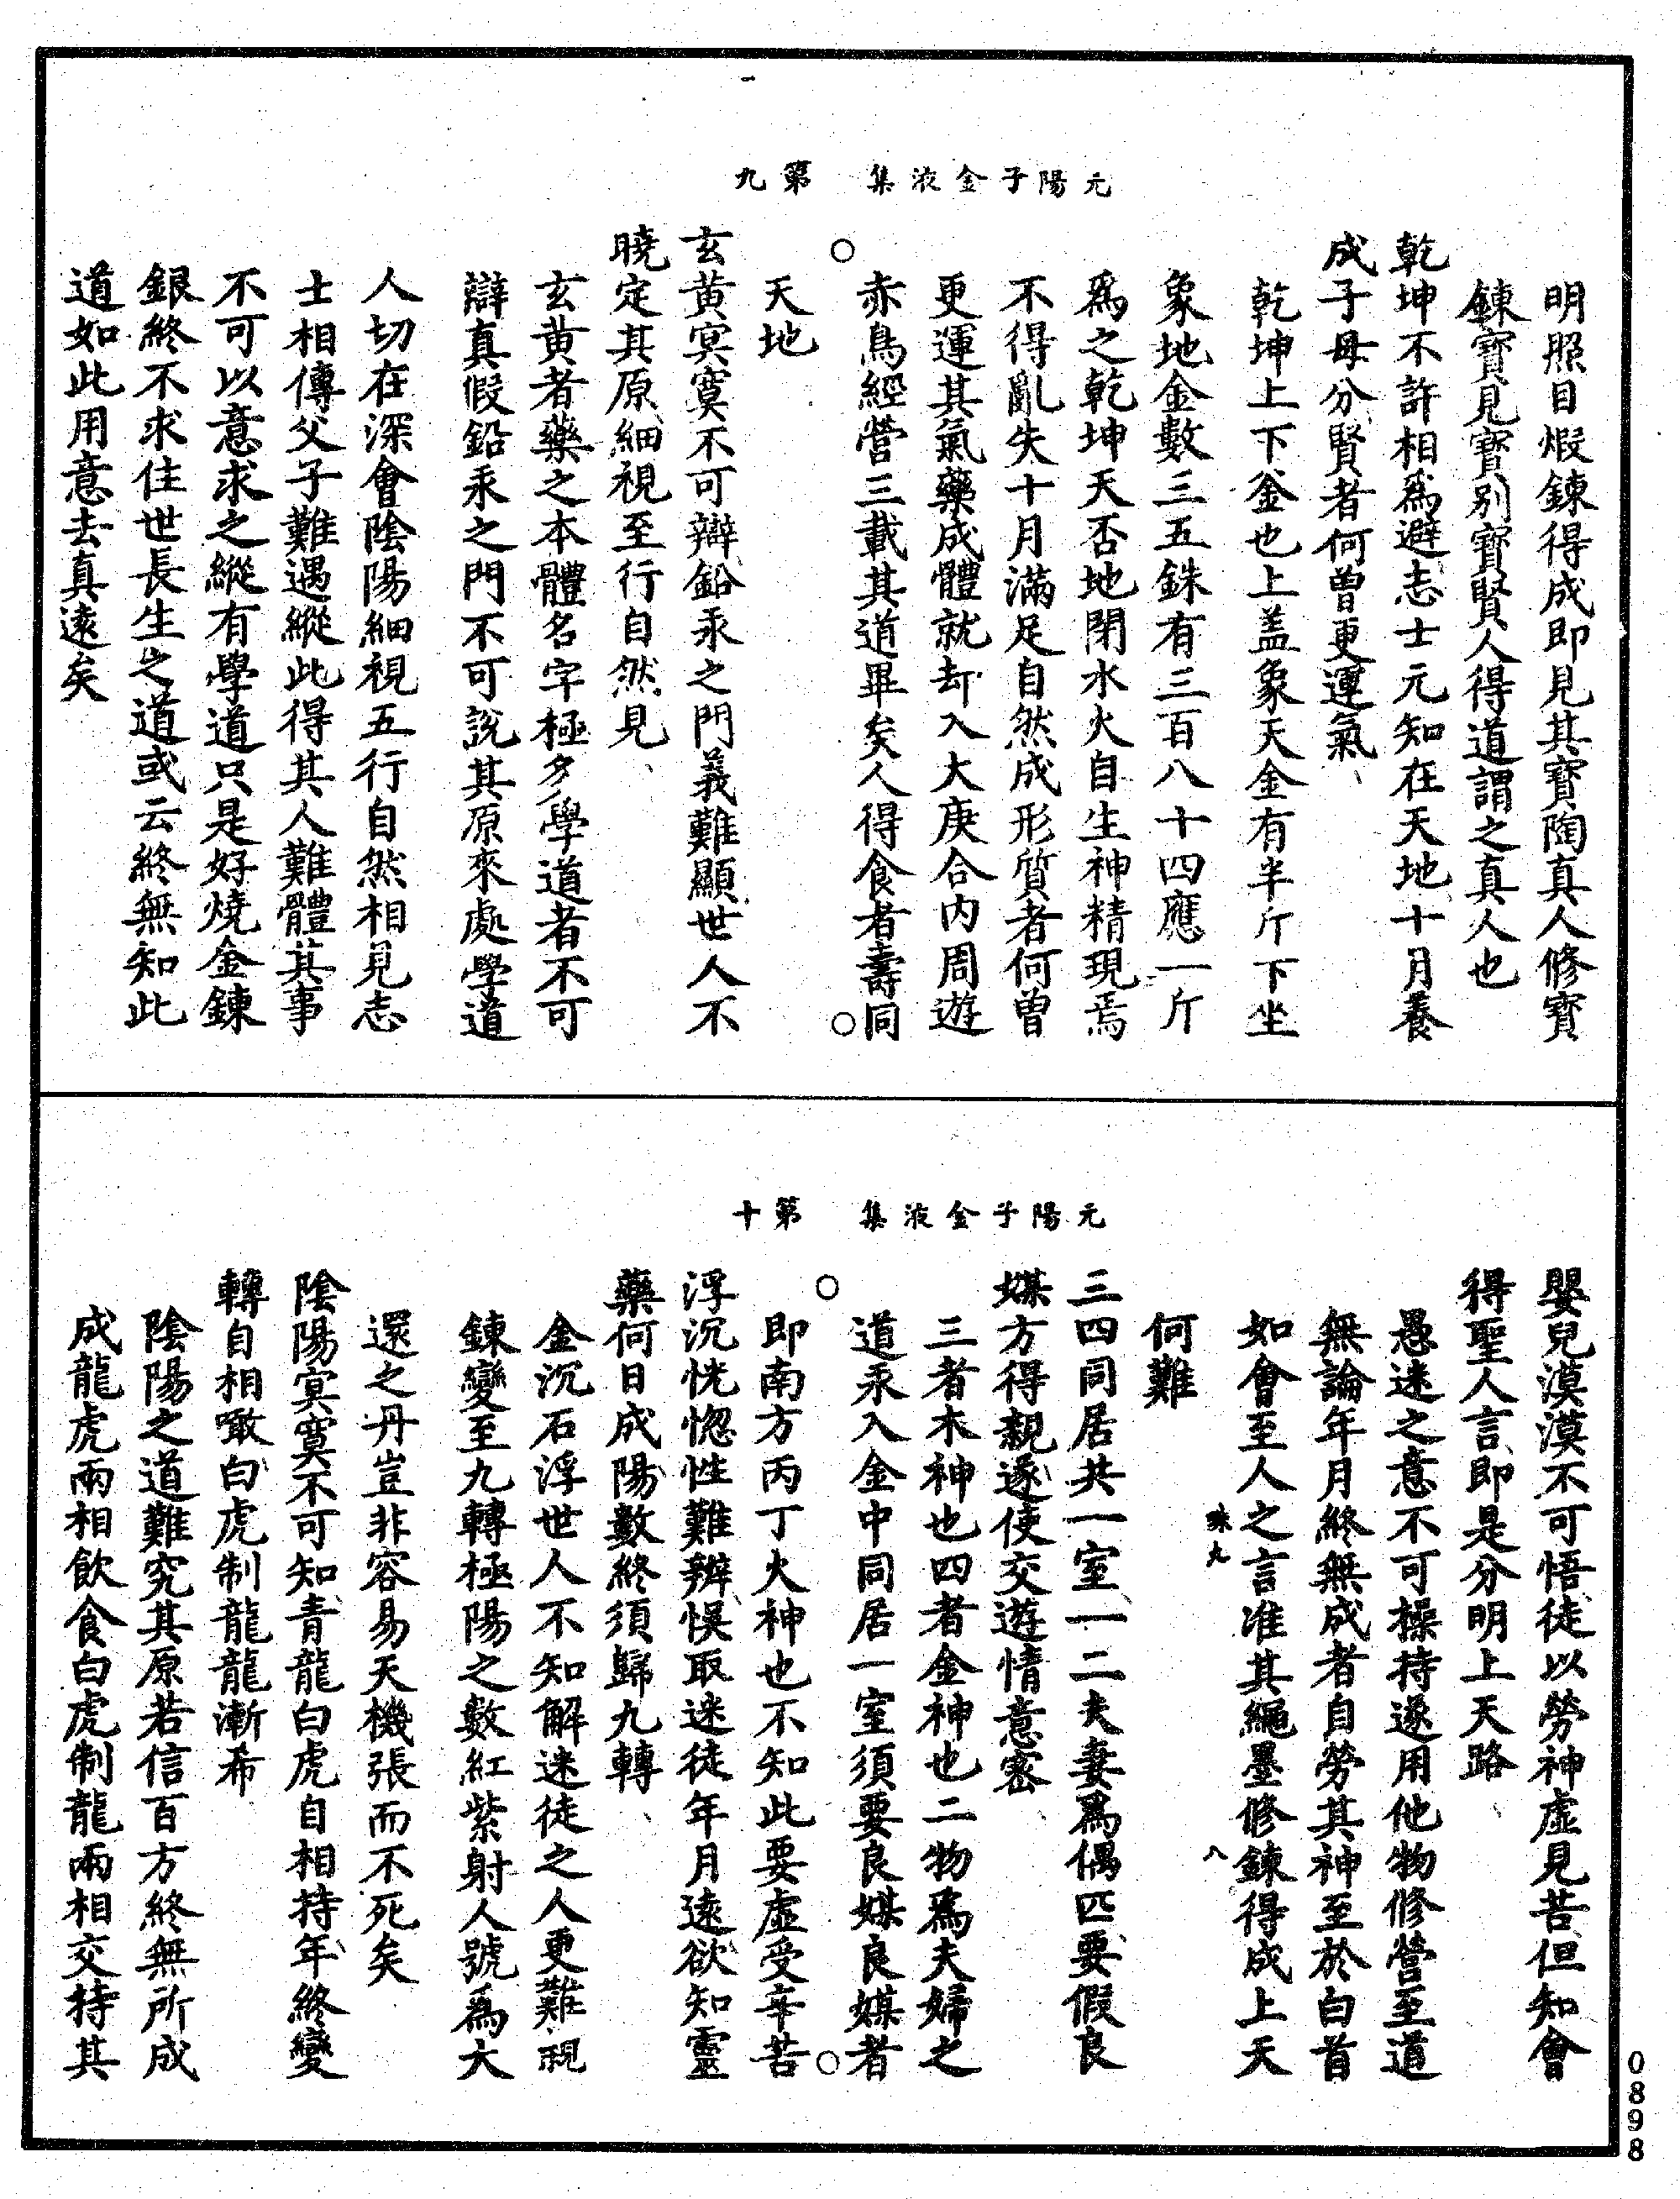 元陽子金液集　第九
明照目煅鍊得成即見其寶陶真人修寶
鍊寶見寶別寶賢人得道謂之真人也
乾坤不許相為避志士元知在天地十月養
成子母分賢者何曾更運氣
乾坤上下釜也上盖象天金有半斤下坐
象地金數三五銖有三百八十四應一斤
爲之乾坤天否地閉水火自生神精現焉
不得亂失十月滿足自然成形質者何曾
更運其氣藥成體就却入大庚合內周遊
赤鳥經營三載其道畢矣人得食者壽同
天地
玄黃㝠寞不可辯鉛汞之門義難顯世人不
曉定其原細視至行自然見
玄黃者藥之本體名字極多學道者不可
辯真假鉛汞之門不可說其原來處學道
人切在深會陰陽細視五行自然相見志
士相傳父子難遇縱此得其人難體其事
不可以意求之縱有學道只是好燒金鍊
銀終不求住世長生之道或云終無知此
道如此用意去真遠矣
元陽子金液集　第十
嬰兒漠漠不可悟徒以勞神虛見苦但知會
得聖人言即是分明上天路
愚迷之意不可操持遂用他物修營至道
無論年月終無成者自勞其神至於白首
如會至人之言准其繩墨修鍊得成上天
何難
三四同居共一室一二夫妻爲偶匹要假良
媒方得親遂使交遊情意密
三者木神也四者金神也二物爲夫婦之
道汞入金中同居一室須要良媒良媒者
即南方丙丁火神也不知此要虛受辛苦
浮沉恍惚性難辨悞取迷徒年月遠欲知靈
藥何日成陽數終須歸九轉
金沉石浮世人不知解迷徒之人更難視
鍊變至九轉極陽之數紅紫射人號爲大
還之丹豈非容易天機張而不死矣
陰陽㝠寞不可知青龍白虎自相持年終變
轉自相噉白虎制龍龍漸希
陰陽之道難究其原若信百方終無所成
成龍虎兩相飲食白虎制龍兩相交持其
八
0898